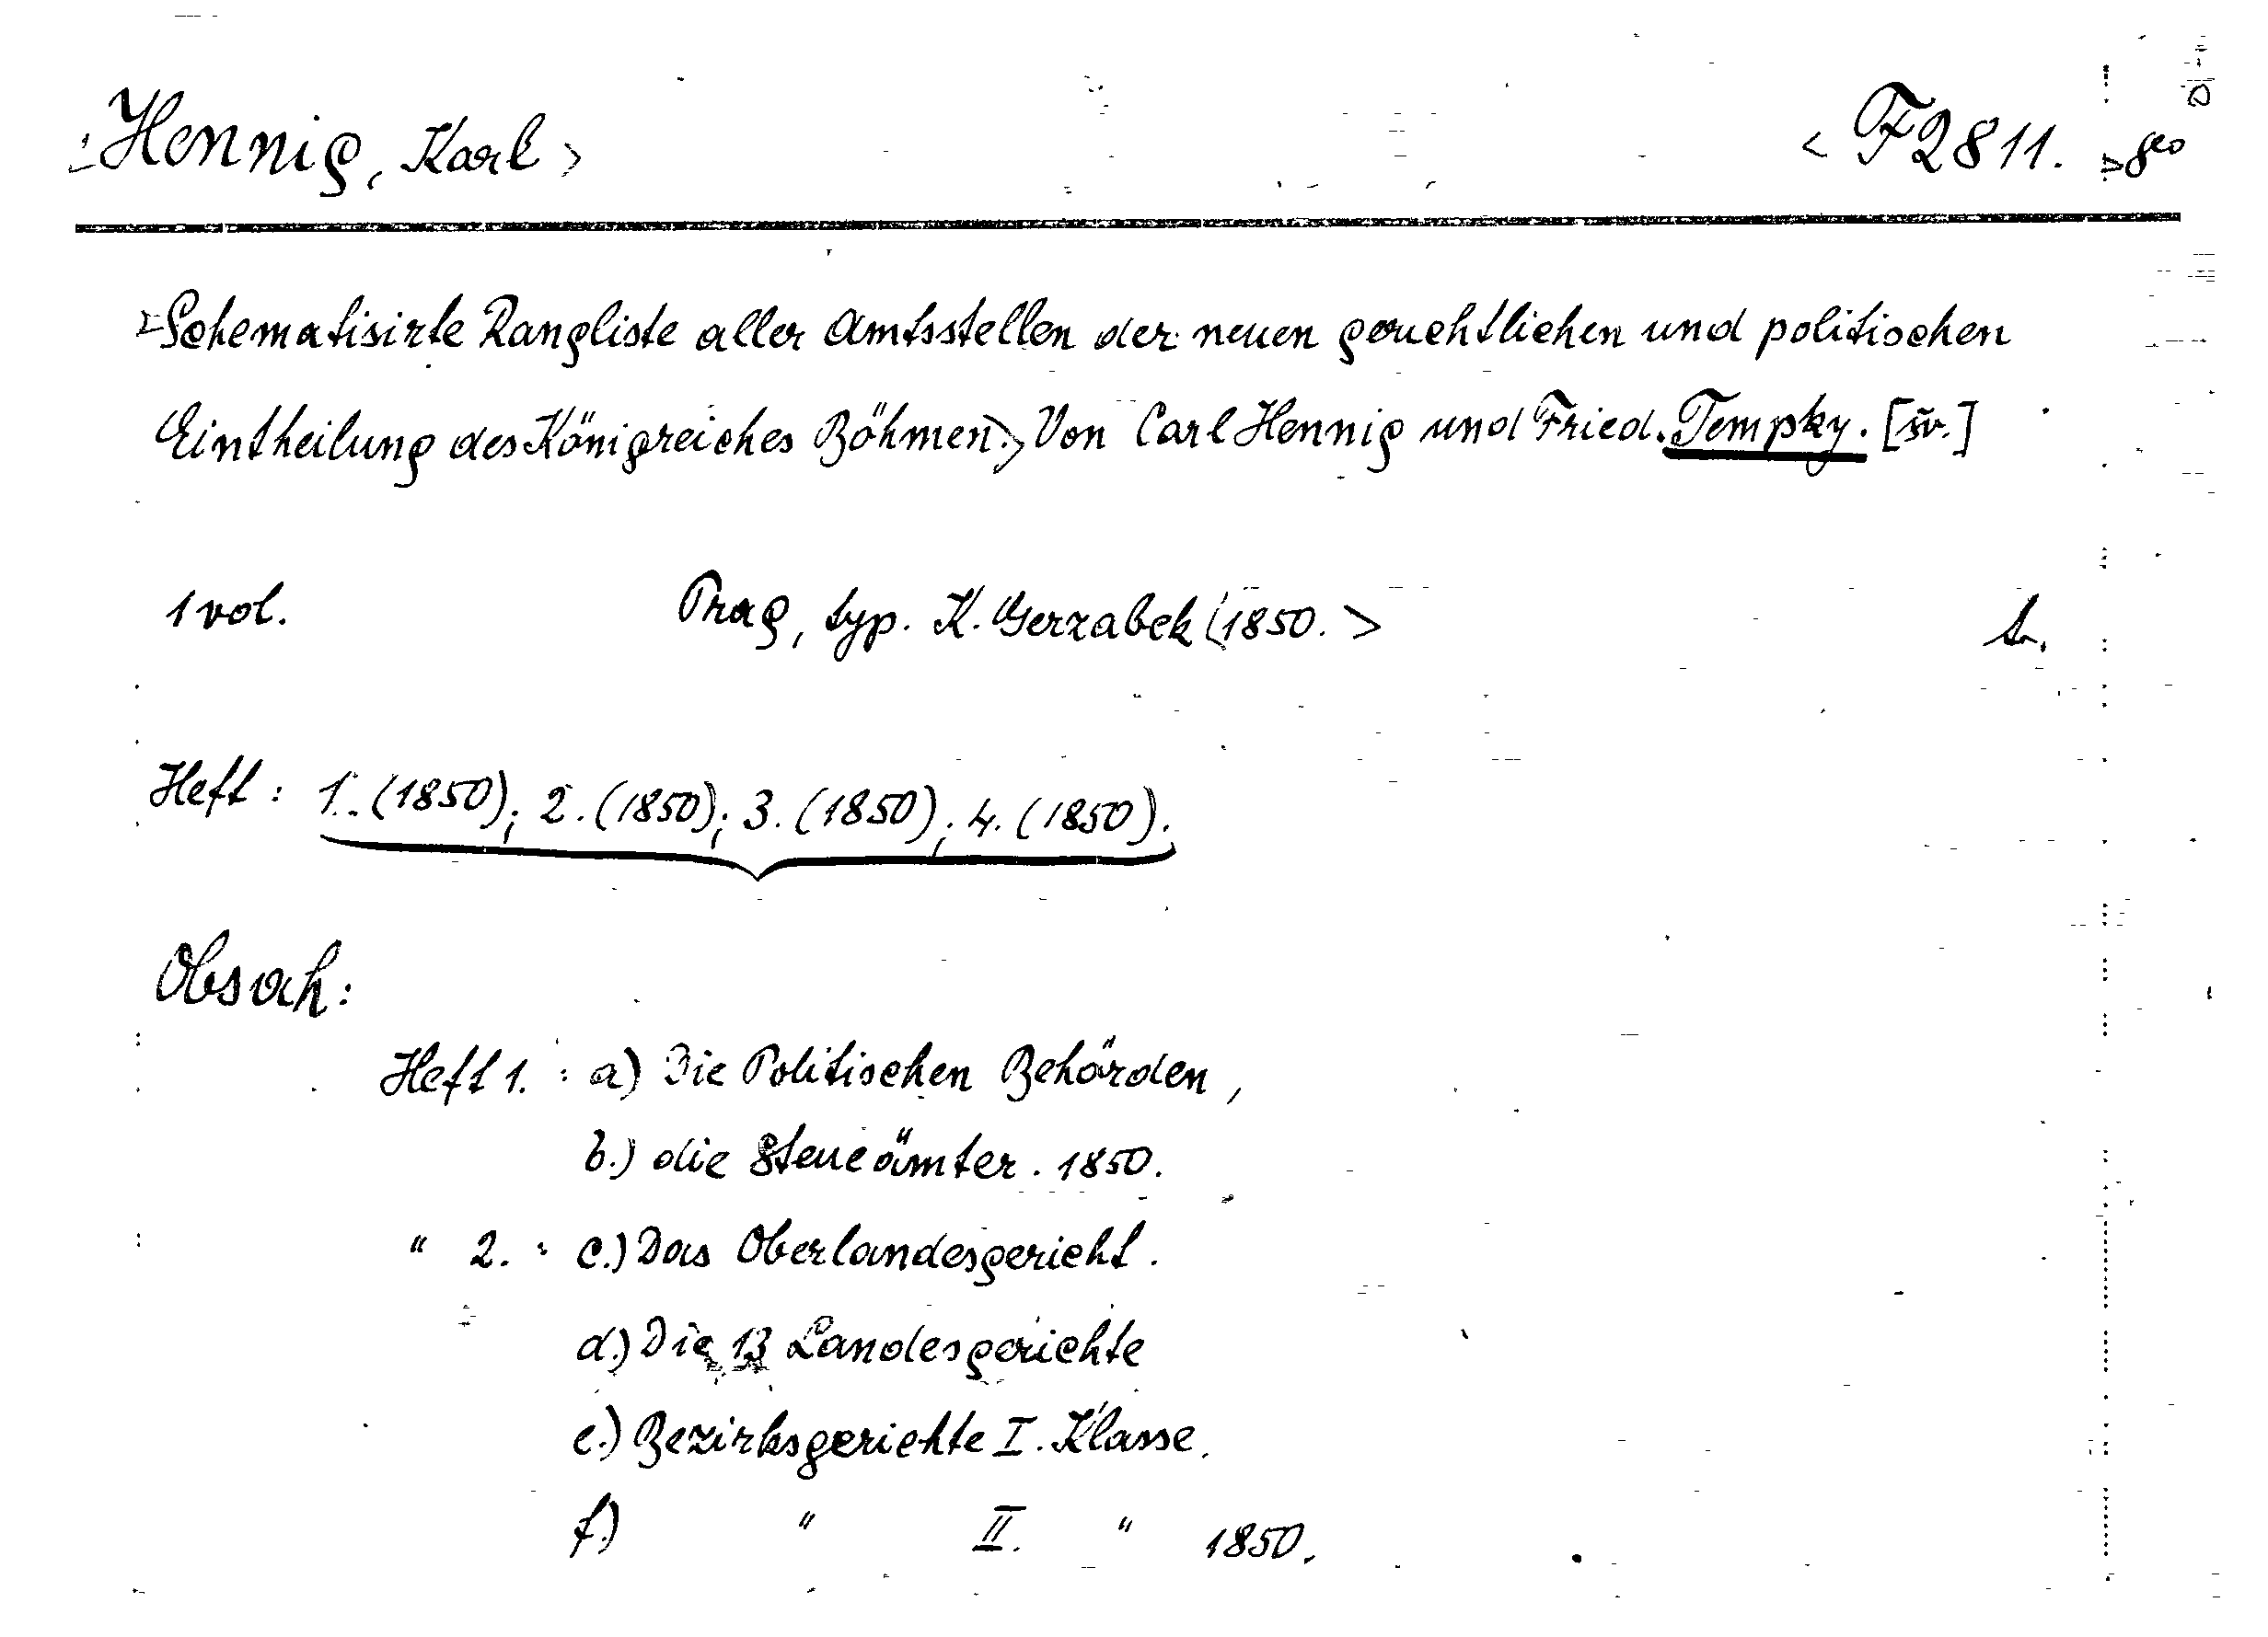 <Hennig, Karl> <F2811.> 8°
<Schematisirte Rangliste aller Amtsstellen der neuen gerichtlichen und politischen
Eintheilung des Königreiches Böhmen.> Von Carl Hennig und Fried. Tempky. [šv.]
1 vol. Prag, typ. K. Gerzabek <1850.>
Heft: 1. (1850); 2. (1850); 3. (1850); 4. (1850).
Obsah:
Heft 1. : a) Die Politischen Behörden,
b.) die Steueämter. 1850.
" 2. : c.) Das Oberlandesgericht.
d.) Die 13 Landesgerichte
e.) Bezirksgerichte I. Klasse.
f.) " II. " 1850.